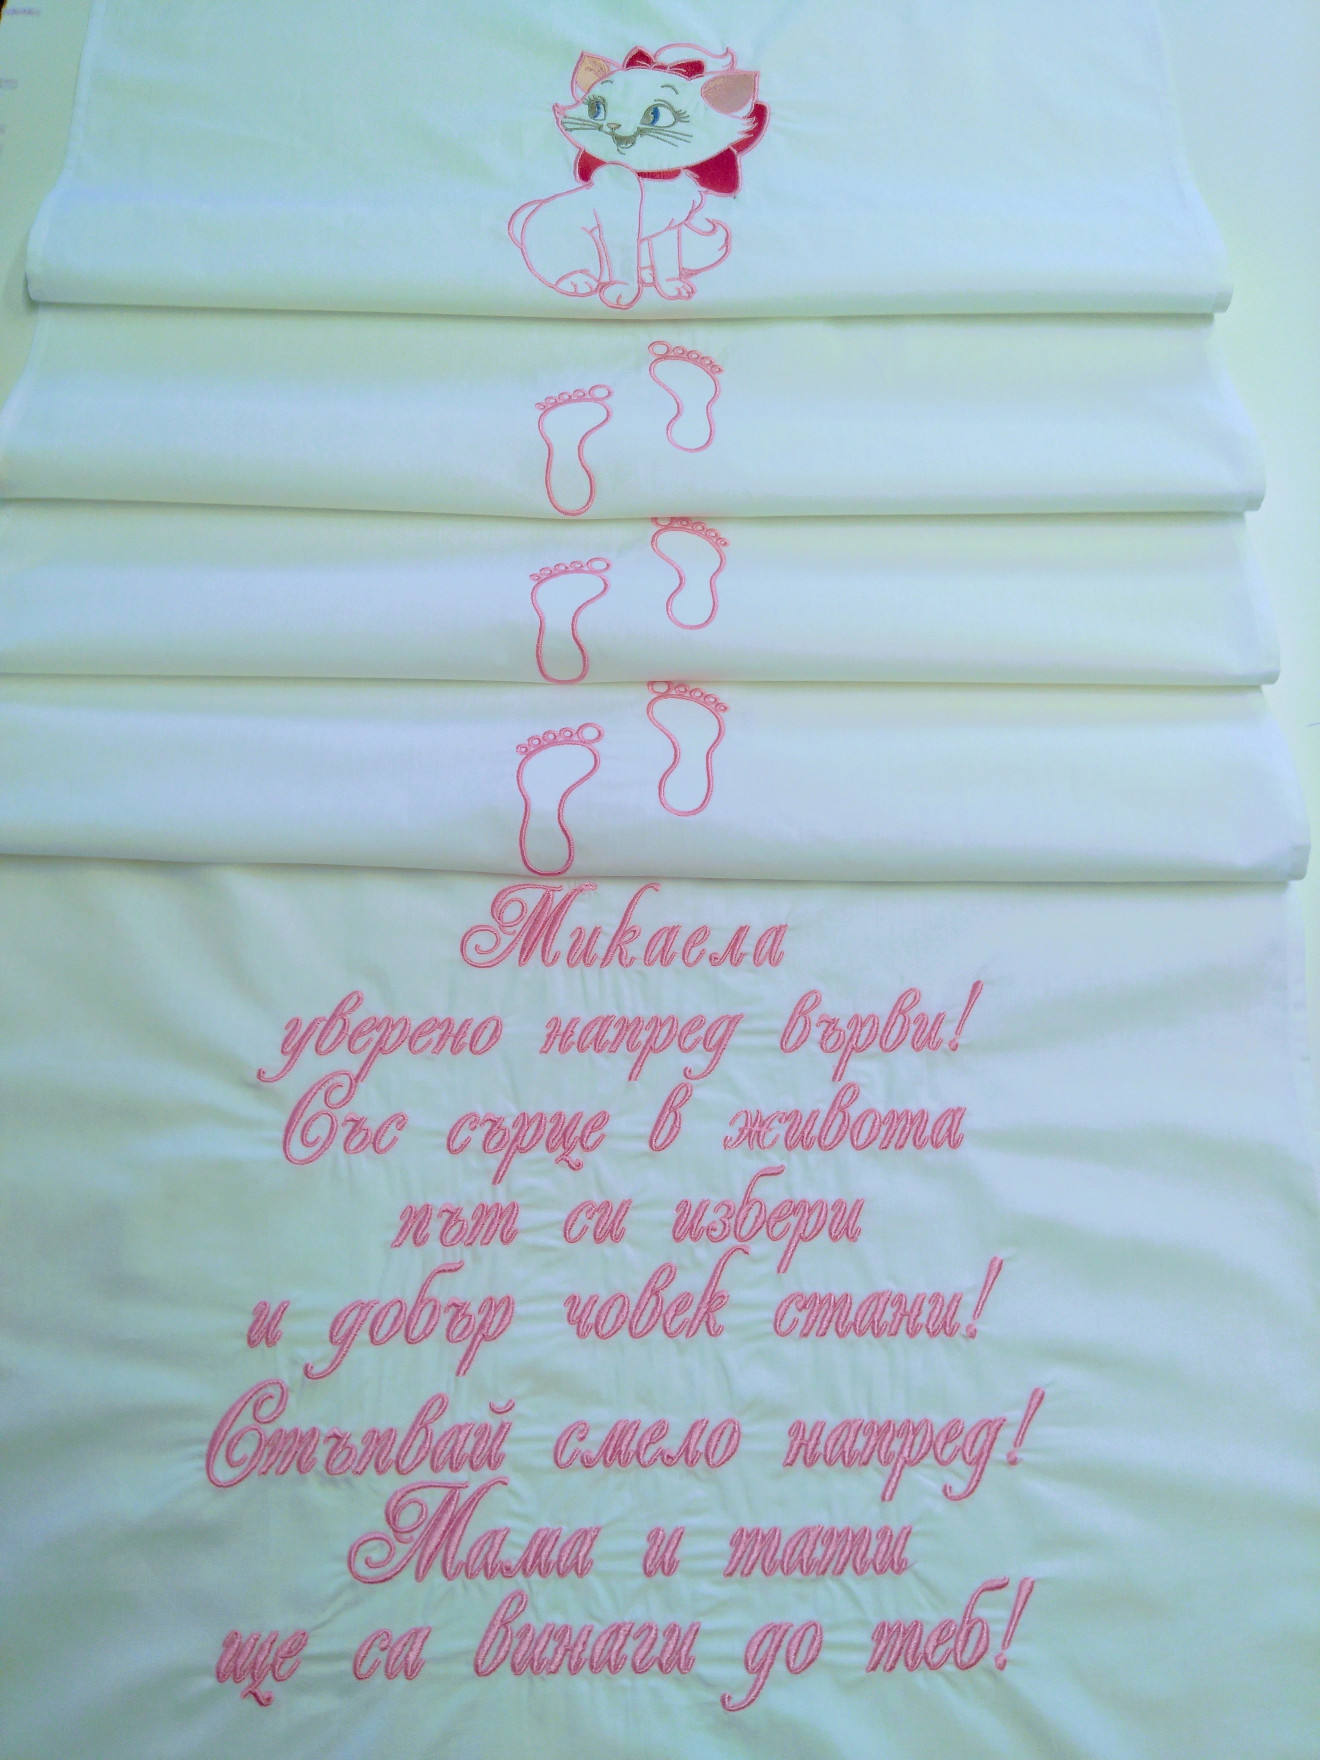 Микаела
уверено напред върви!
Със сърце в живота
път си избери
и добър човек стани!
Стъпвай смело напред!
Мама и тати
ще са винаги до теб!